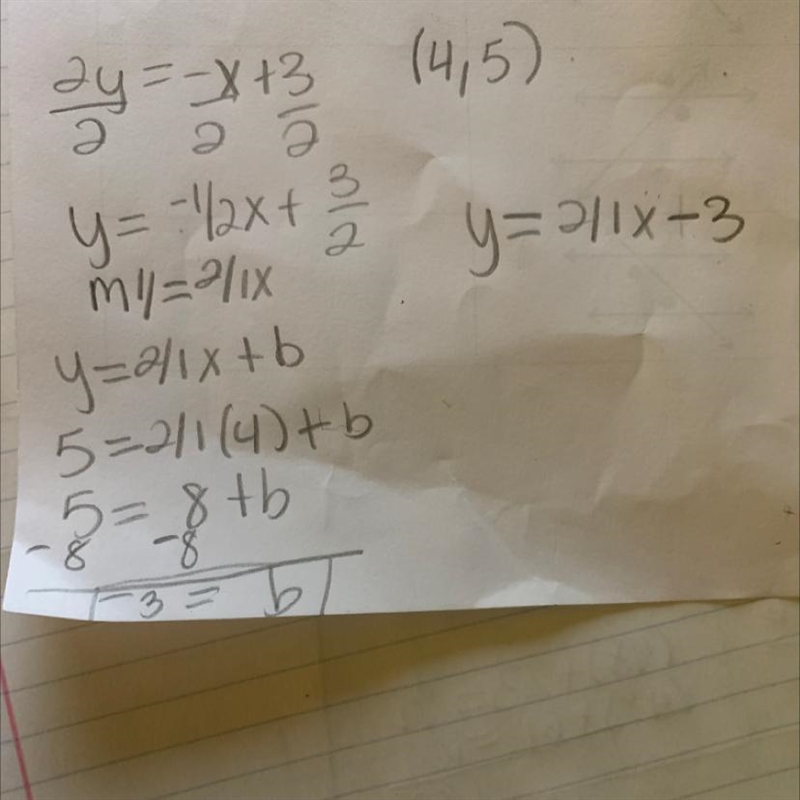 2y = -x + 3 (4,5)
2 2 2
y = -1/2x + 3/2
y = 2/1x - 3
m11 = 2/1x
y = 2/1x + b
5 = 2/1(4) + b
5 = 8 + b
-8 -8
-3 = b